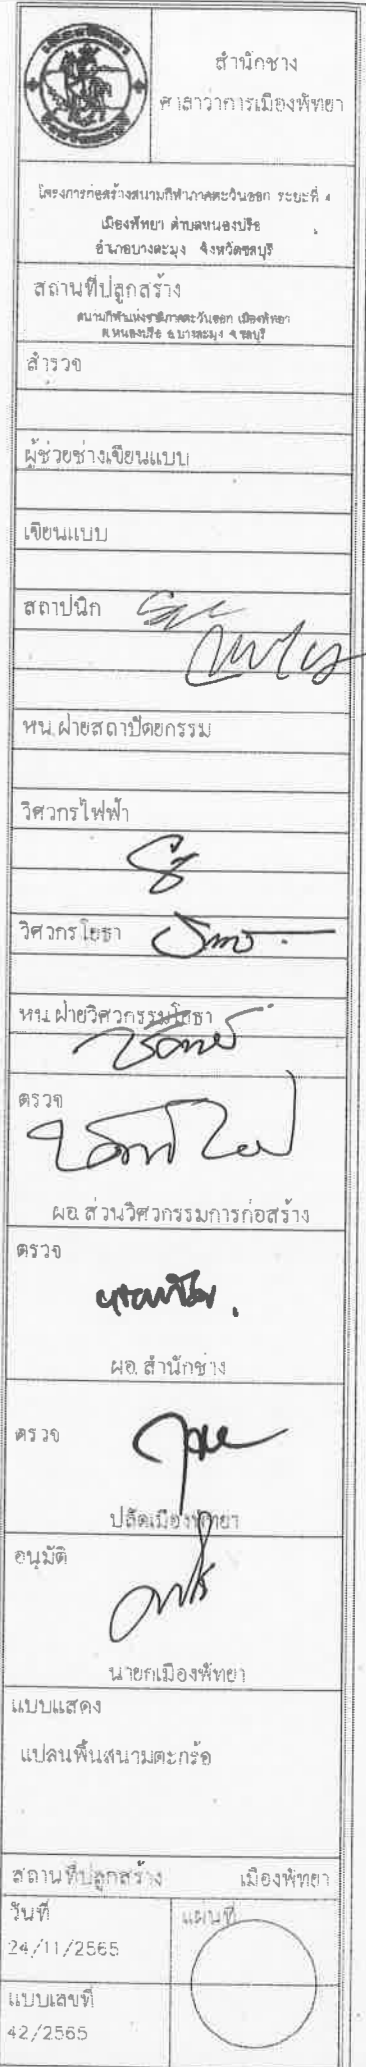 สำนักช่าง
ศาลาว่าการเมืองพัทยา
โครงการก่อสร้างสนามกีฬาภาคตะวันออก ระยะที่ 4
เมืองพัทยา ตำบลหนองปรือ
อำเภอบางละมุง จังหวัดชลบุรี
สถานที่ปลูกสร้าง
สนามกีฬาแห่งชาติภาคตะวันออก เมืองพัทยา
ต.หนองปรือ อ.บางละมุง จ.ชลบุรี
สำรวจ
ผู้ช่วยช่างเขียนแบบ
เขียนแบบ
สถาปนิก
หน.ฝ่ายสถาปัตยกรรม
วิศวกรไฟฟ้า
วิศวกรโยธา
หน.ฝ่ายวิศวกรรมโยธา
ตรวจ
ผอ.ส่วนวิศวกรรมการก่อสร้าง
ตรวจ
ผอ.สำนักช่าง
ตรวจ
ปลัดเมืองพัทยา
อนุมัติ
นายกเมืองพัทยา
แบบแสดง
แปลนพื้นสนามตะกร้อ
สถานที่ปลูกสร้าง เมืองพัทยา
วันที่
24/11/2565
แผ่นที่
แบบเลขที่
42/2565